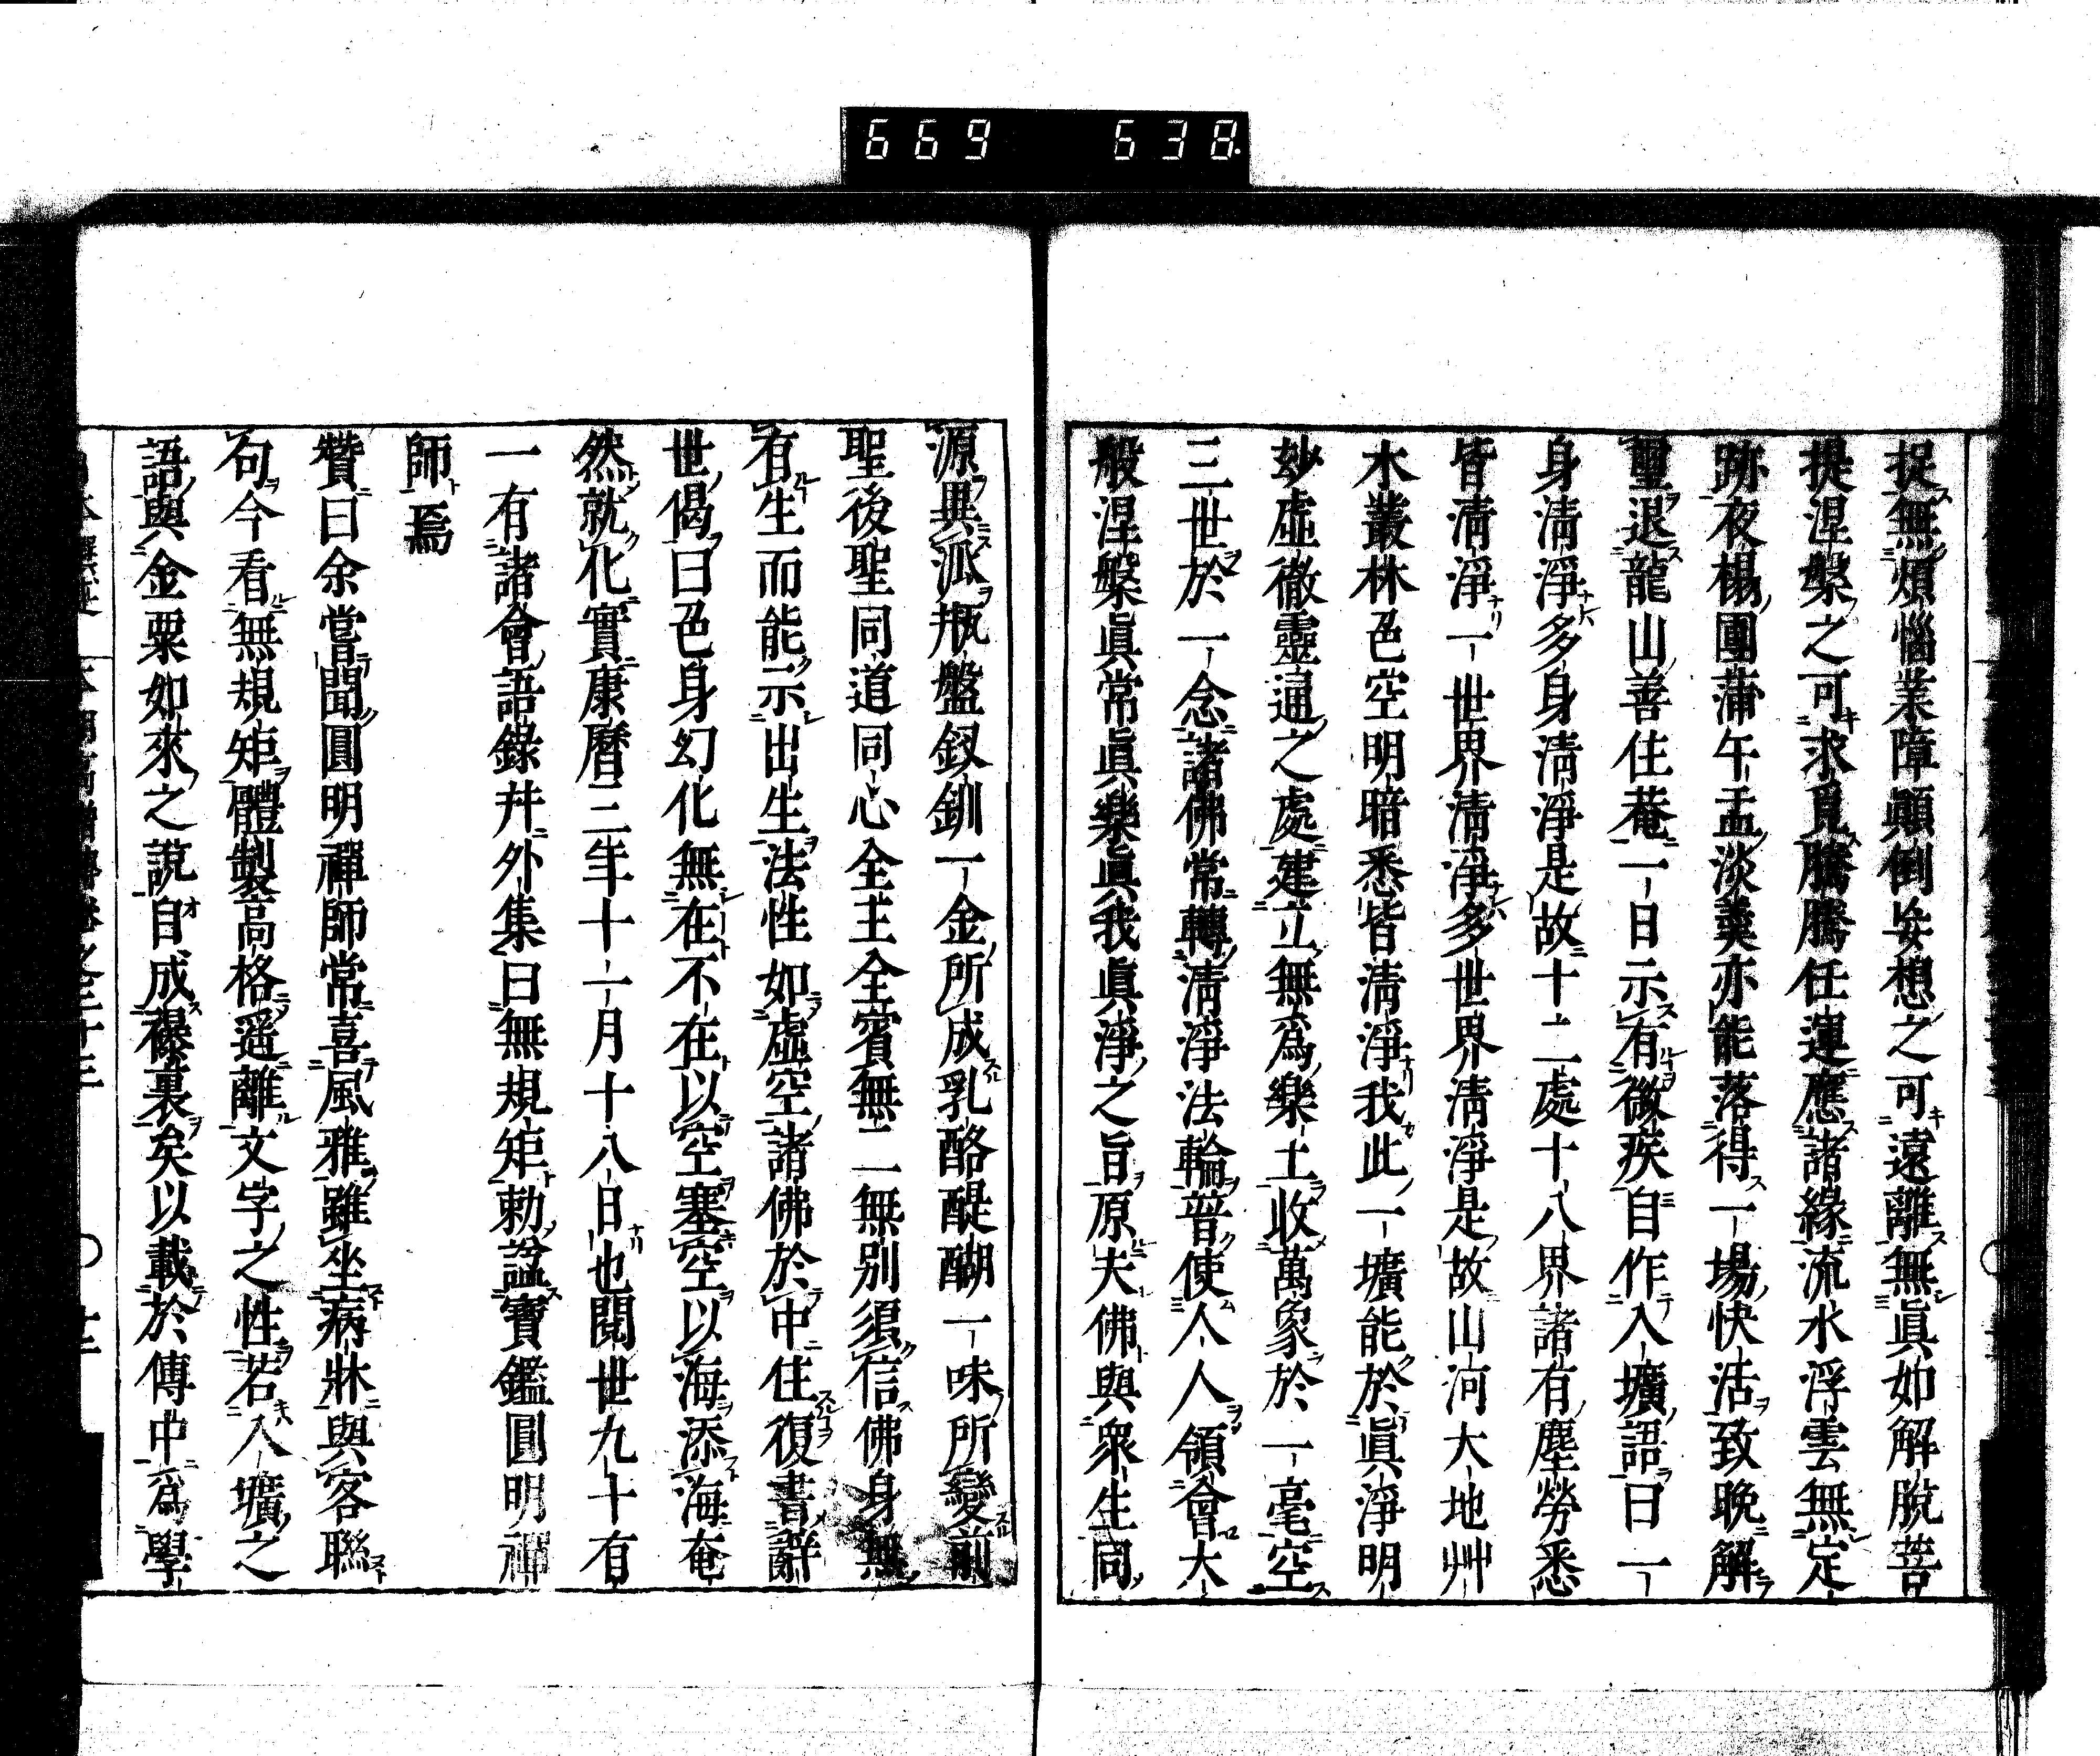 669 638
捉無煩惱業障顚倒妄想之可遠離無眞如解脫菩
提涅槃之可求覓騰騰任運應諸緣流水浮雲無定
跡夜榻團蒲午盂淡羹亦能落得一場快活致晚解
璽退龍山善住菴一日示有微疾自作入壙語曰一
身清淨多身清淨是故十二處十八界諸有塵勞悉
皆清淨一世界清淨多世界清淨是故山河大地艸
木叢林色空明暗悉皆清淨我此一壙能於眞淨明
妙虛徹靈通之處建立無爲樂土收萬象於一毫空
三世於一念諸佛常轉清淨法輪普使人人領會大
般涅槃眞常眞樂眞我眞淨之旨原夫佛與衆生同
源異派瓶盤釵釧一金所成乳酪醍醐一味所變前
聖後聖同道同心全主全賓無二無別須信佛身無
有生而能示出生法性如虛空諸佛於中住復書辭
世偈曰色身幻化無在不在以空塞空以海添海奄
然就化實康曆三年十一月十八日也閱世九十有
一有諸會語錄幷外集曰無規矩勅謚寶鑑圓明禪
師焉
贊曰余嘗聞圓明禪師常喜風雅雖坐病牀與客聯
句今看無規矩體製高格遥離文字之性若入壙之
語與金粟如來之說自成襟裏矣以載於傳中爲學